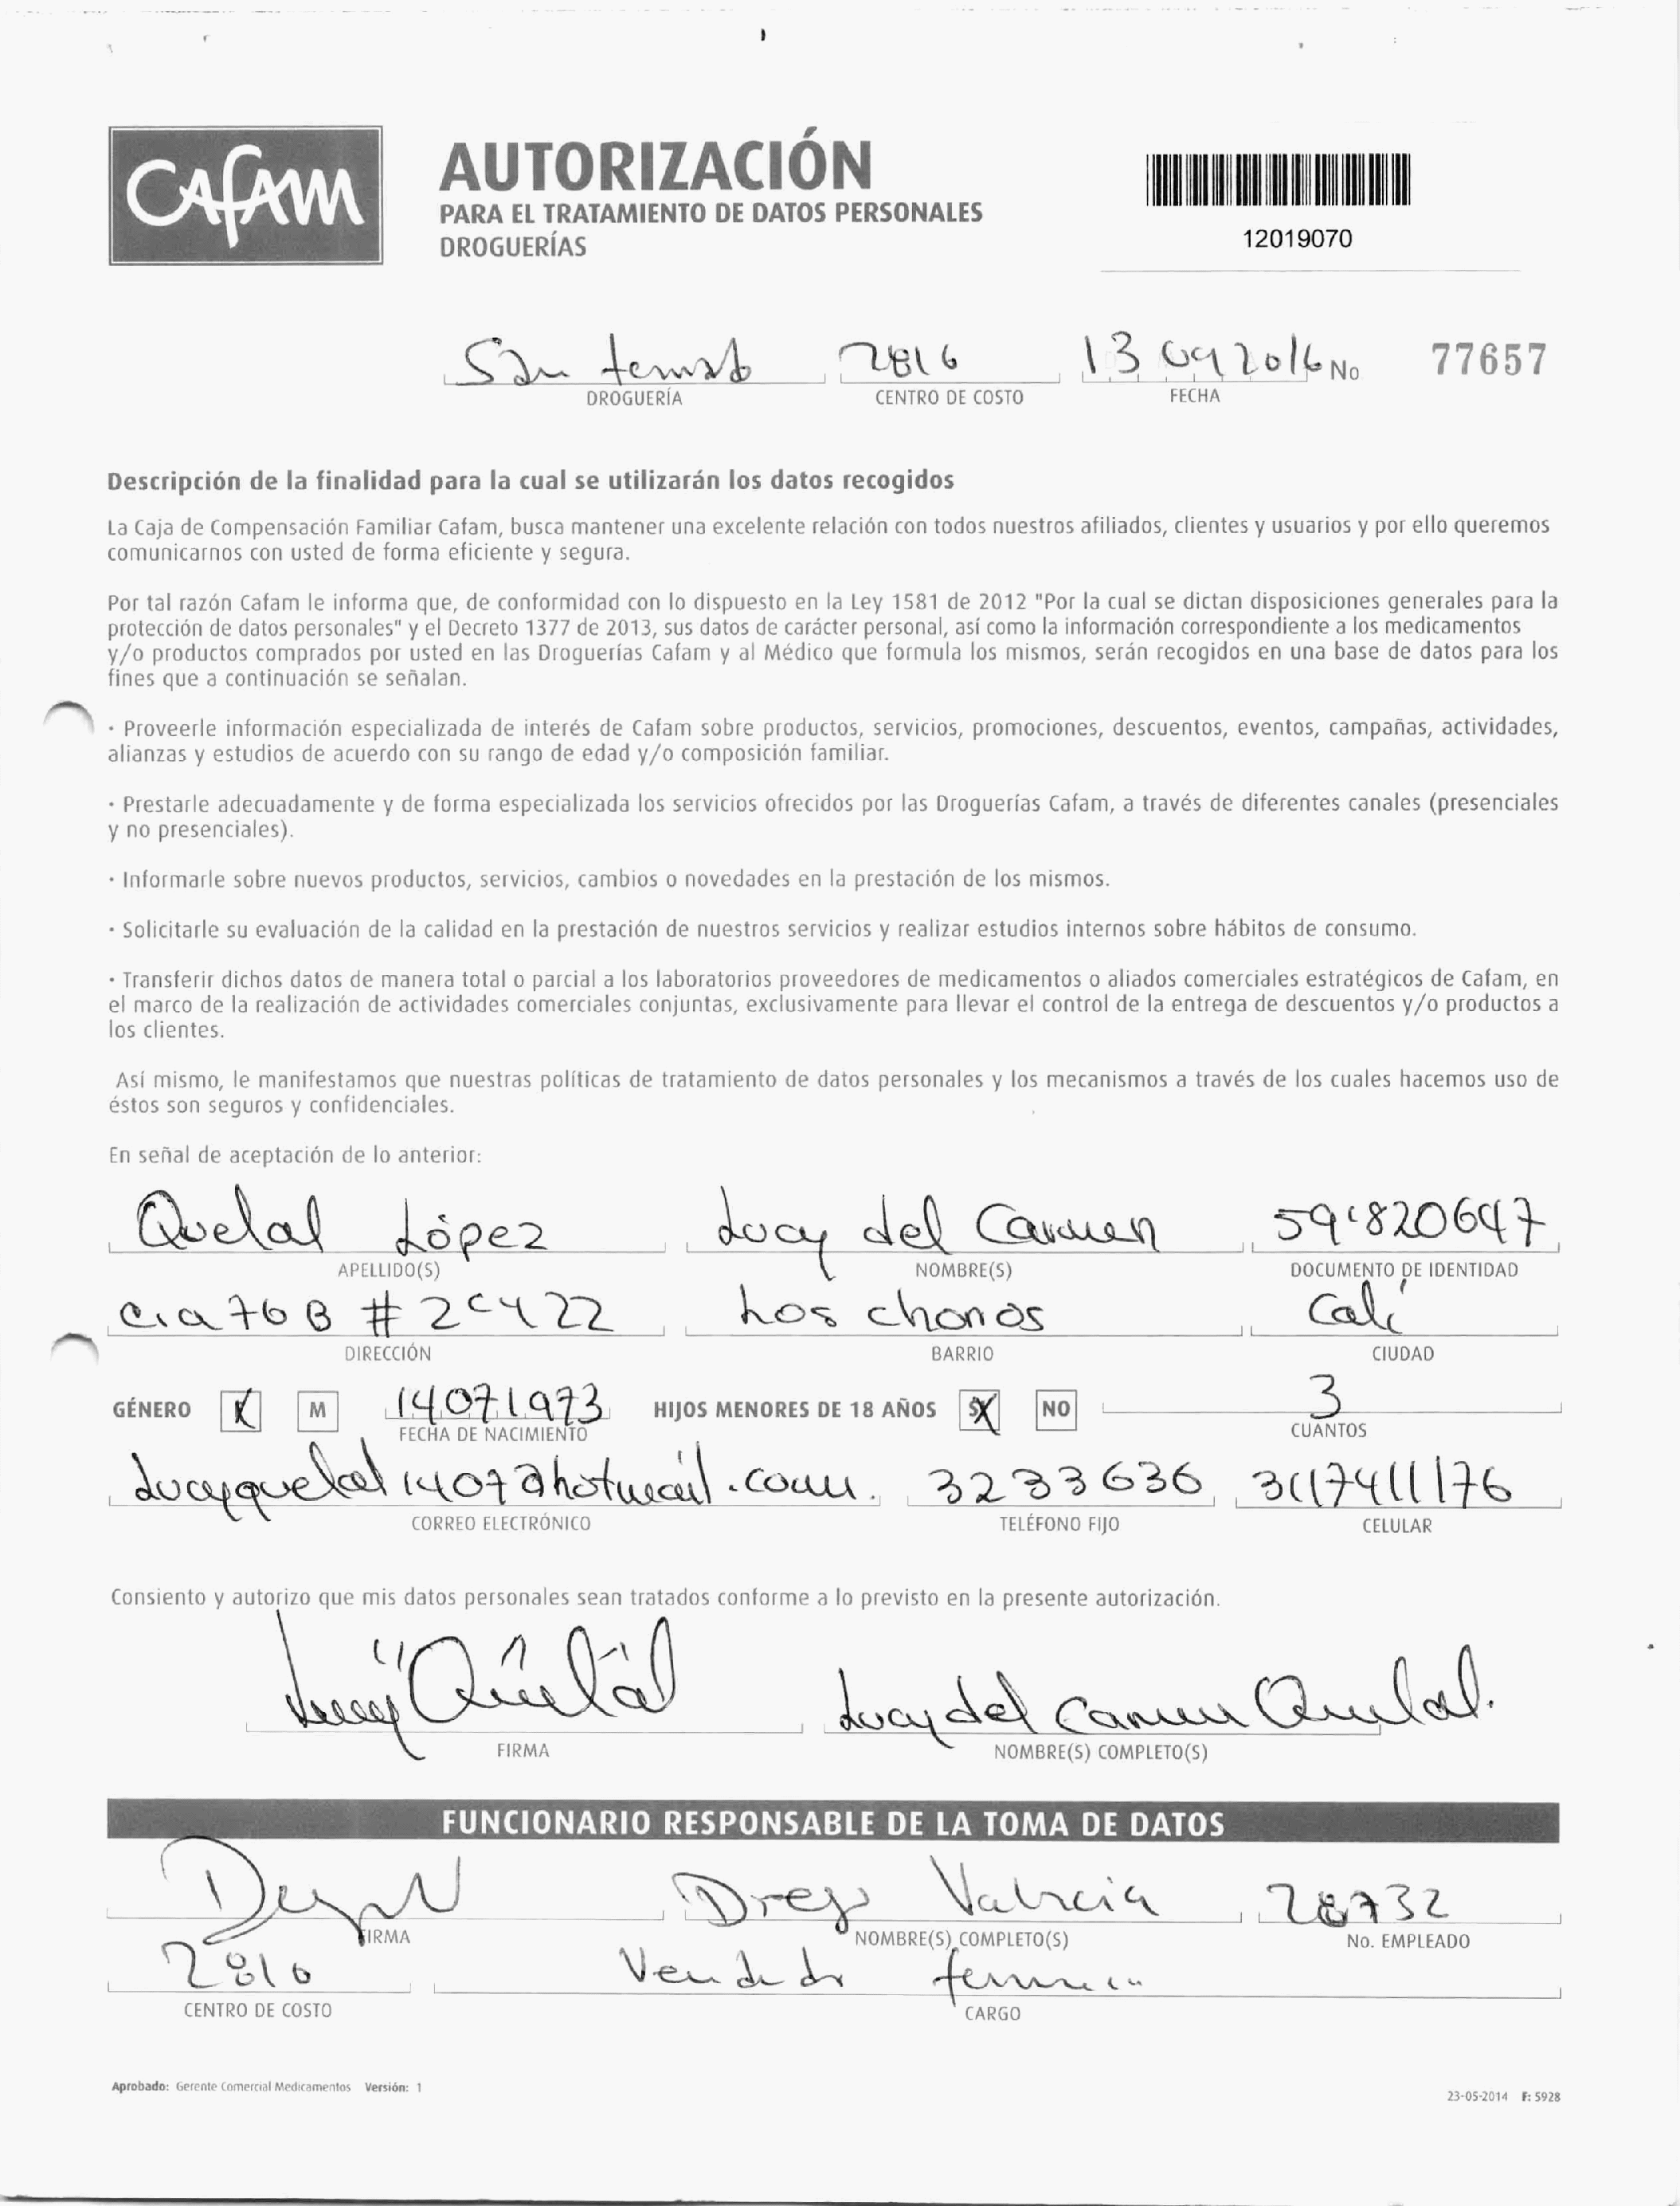 CAFAM
AUTORIZACIÓN
PARA EL TRATAMIENTO DE DATOS PERSONALES
DROGUERÍAS
12019070
San 2816 13 09 2016 No 77657
DROGUERÍA CENTRO DE COSTO FECHA
Descripción de la finalidad para la cual se utilizarán los datos recogidos
La Caja de Compensación Familiar Cafam, busca mantener una excelente relación con todos nuestros afiliados, clientes y usuarios y por ello queremos
comunicarnos con usted de forma eficiente y segura.
Por tal razón Cafam le informa que, de conformidad con lo dispuesto en la Ley 1581 de 2012 "Por la cual se dictan disposiciones generales para la
protección de datos personales" y el Decreto 1377 de 2013, sus datos de carácter personal, así como la información correspondiente a los medicamentos
y/o productos comprados por usted en las Droguerías Cafam y al Médico que formula los mismos, serán recogidos en una base de datos para los
fines que a continuación se señalan.
· Proveerle información especializada de interés de Cafam sobre productos, servicios, promociones, descuentos, eventos, campañas, actividades,
alianzas y estudios de acuerdo con su rango de edad y/o composición familiar.
· Prestarle adecuadamente y de forma especializada los servicios ofrecidos por las Droguerías Cafam, a través de diferentes canales (presenciales
y no presenciales).
· Informarle sobre nuevos productos, servicios, cambios o novedades en la prestación de los mismos.
· Solicitarle su evaluación de la calidad en la prestación de nuestros servicios y realizar estudios internos sobre hábitos de consumo.
· Transferir dichos datos de manera total o parcial a los laboratorios proveedores de medicamentos o aliados comerciales estratégicos de Cafam, en
el marco de la realización de actividades comerciales conjuntas, exclusivamente para llevar el control de la entrega de descuentos y/o productos a
los clientes.
Así mismo, le manifestamos que nuestras políticas de tratamiento de datos personales y los mecanismos a través de los cuales hacemos uso de
éstos son seguros y confidenciales.
En señal de aceptación de lo anterior:
Quelal López Lucy del Carmen 59'820647
APELLIDO(S) NOMBRE(S) DOCUMENTO DE IDENTIDAD
76 B # Los chonos Cali
DIRECCIÓN BARRIO CIUDAD
GÉNERO M 14071973 HIJOS MENORES DE 18 AÑOS SI NO 3
FECHA DE NACIMIENTO CUANTOS
lucyquelal1407@hotmail.com. 3233636 3117411176
CORREO ELECTRÓNICO TELÉFONO FIJO CELULAR
Consiento y autorizo que mis datos personales sean tratados conforme a lo previsto en la presente autorización.
Lucy Quelal Lucy del Carmen Quelal.
FIRMA NOMBRE(S) COMPLETO(S)
FUNCIONARIO RESPONSABLE DE LA TOMA DE DATOS
Diego Valencia 28732
FIRMA NOMBRE(S) COMPLETO(S) No. EMPLEADO
2816 Vendedor
CENTRO DE COSTO CARGO
Aprobado: Gerente Comercial Medicamentos Versión: 1
23-05-2014 F: 5928